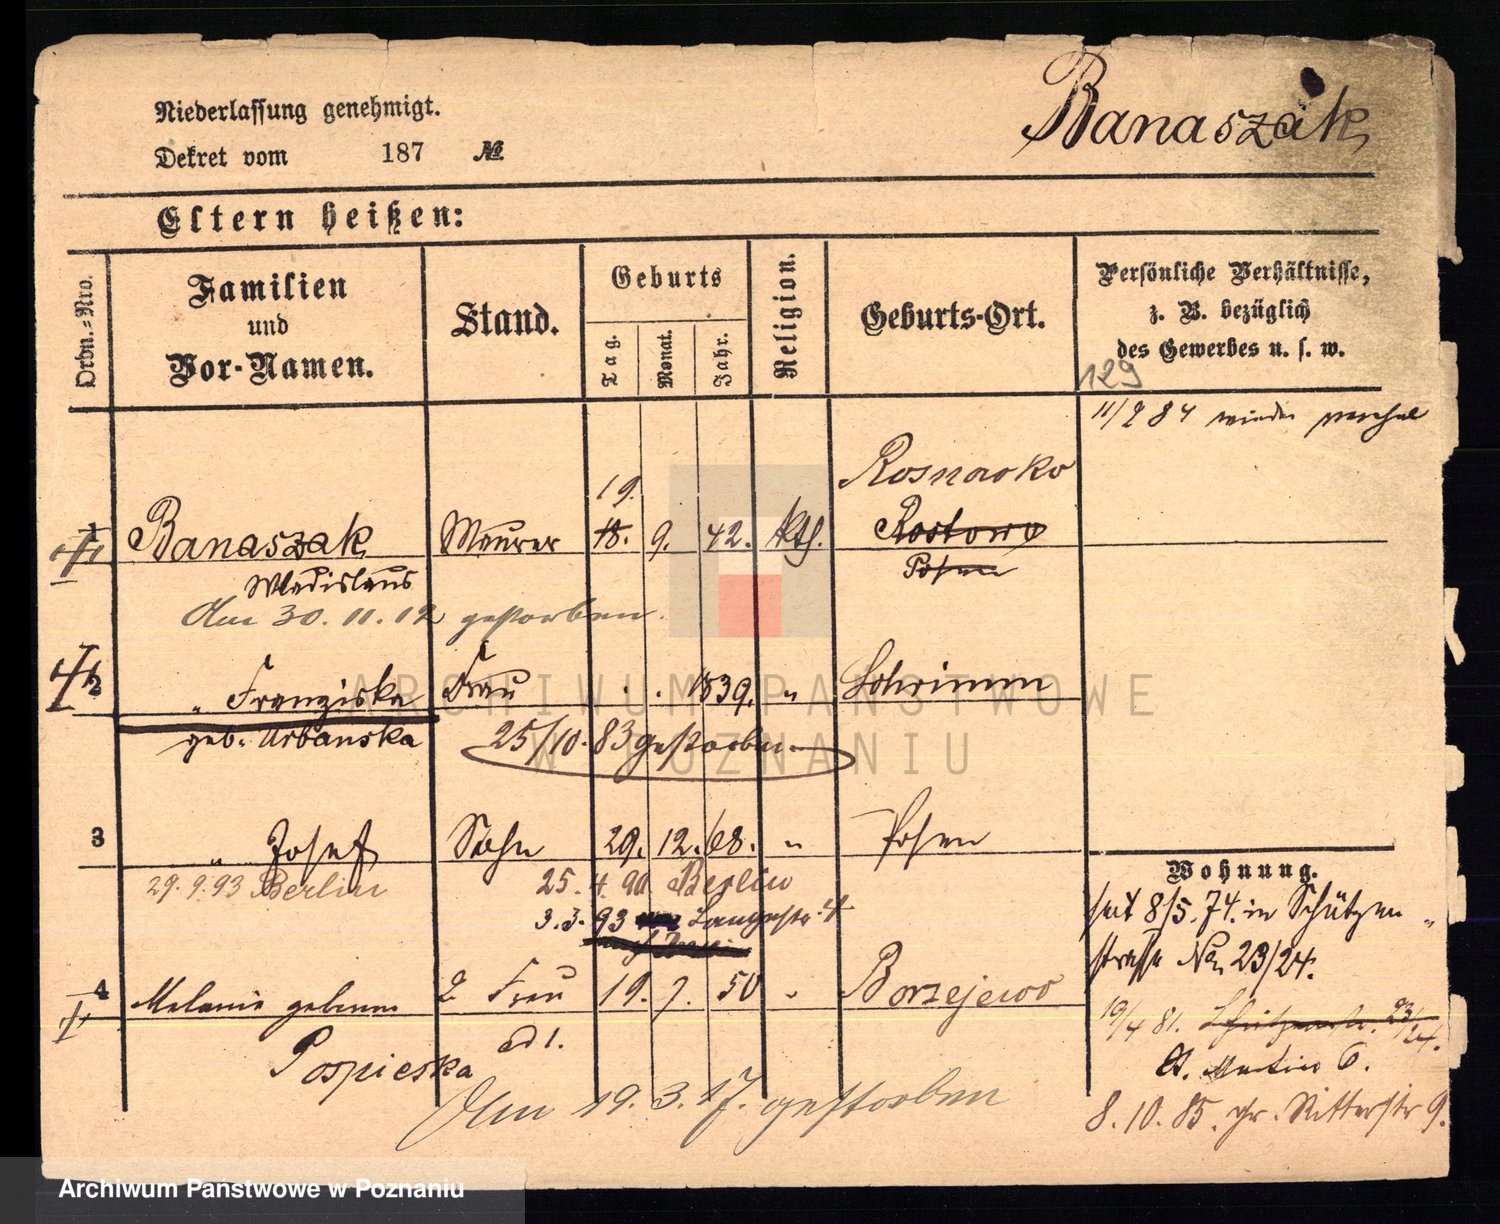 Niederlassung genehmigt.
Banaszak
Dekret vom 187 №
Eltern heißen:
Ordn.=Nro.
Familien
und
Vor-Namen.
Stand.
Geburts
Tag.
Monat.
Jahr.
Religion.
Geburts-Ort.
Persönliche Verhältnisse,
z. B. bezüglich
des Gewerbes u. s. w.
129
11/9 84 wieder
19.
Rosnowko
1 Banaszak Maurer 18. 9. 42. kth. Rostowo
Posen
Wladislaus
Am 30.11.12 gestorben.
2 " Franziska Frau . . 1839. "
geb. Urbanska 25/10. 83 gestorben
3 " Josef Sohn 29. 12. 68. " Posen
29.9.93 Berlin 25. 4. 90 Berlin
3.3.93 Langestr. 4
Wohnung.
seit 8/5. 74. in Schützen
strasse No. 23/24.
4 Melanie geborene 2. Frau 19. 7. 50 " Borzejewo
ad 1.
Pospieska
19/4 81. Schützenstr. 23/24.
St. Martin 6.
Am 19.3.17. gestorben
8.10.85. gr. Ritterstr 9.
ARCHIWUM PAŃSTWOWE
W POZNANIU
Archiwum Państwowe w Poznaniu